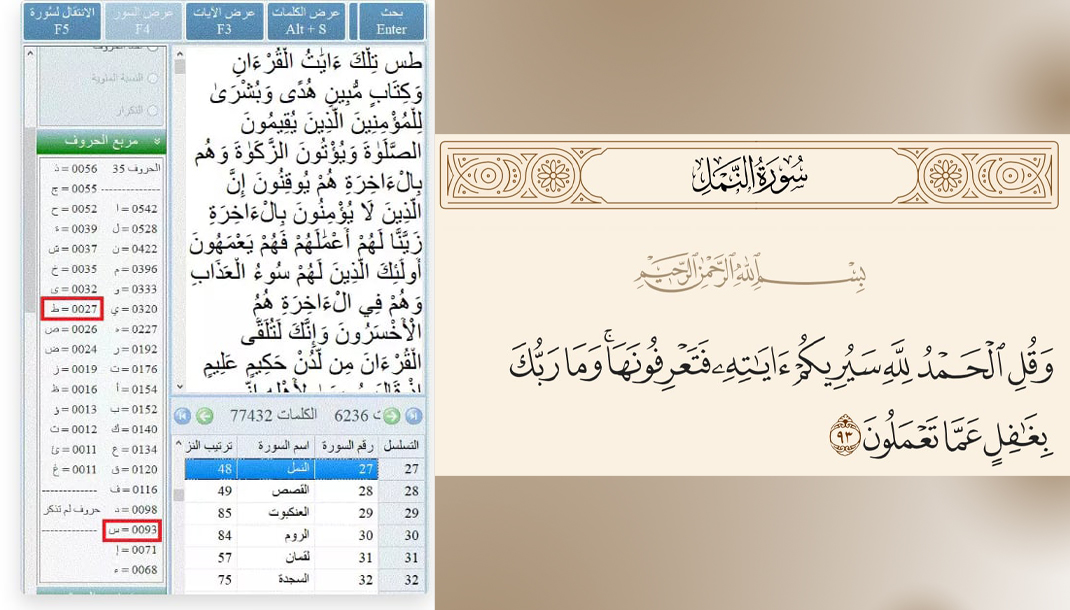 بحث
Enter
عرض الكلمات
Alt + S
عرض الآيات
F3
عرض السور
F4
الانتقال لسُورة
F5
طس تِلْكَ ءَايَٰتُ الْقُرْءَانِ
وَكِتَابٍ مُّبِينٍ هُدًى وَبُشْرَىٰ
لِلْمُؤْمِنِينَ الَّذِينَ يُقِيمُونَ
الصَّلَوٰةَ وَيُؤْتُونَ الزَّكَوٰةَ وَهُم
بِالْءَاخِرَةِ هُمْ يُوقِنُونَ إِنَّ
الَّذِينَ لَا يُؤْمِنُونَ بِالْءَاخِرَةِ
زَيَّنَّا لَهُمْ أَعْمَٰلَهُمْ فَهُمْ يَعْمَهُونَ
أُولَئِكَ الَّذِينَ لَهُمْ سُوءُ الْعَذَابِ
وَهُمْ فِي الْءَاخِرَةِ هُمُ
الْأَخْسَرُونَ وَإِنَّكَ لَتُلَقَّى
الْقُرْءَانَ مِن لَّدُنْ حَكِيمٍ عَلِيمٍ
النسبة المئوية
التكرار
مربع الحروف
الحروف 35
0542 = ا
0528 = ل
0422 = ن
0396 = م
0333 = و
0320 = ي
0227 = ه
0192 = ر
0176 = ت
0154 = أ
0152 = ب
0140 = ك
0134 = ع
0120 = ق
0116 = ف
0098 = د
0093 = س
0071 = إ
0068 = ء
0056 = ذ
0055 = ج
0052 = ح
0039 = ة
0037 = ش
0035 = خ
0032 = ى
0027 = ط
0026 = ص
0024 = ض
0019 = ز
0016 = ظ
0013 = ؤ
0012 = ث
0011 = ئ
0011 = غ
حروف لم تذكر
6236 الكلمات 77432
التسلسل رقم السورة اسم السورة ترتيب النز
27 27 النمل 48
28 28 القصص 49
29 29 العنكبوت 85
30 30 الروم 84
31 31 لقمان 57
32 32 السجدة 75
سُورَةُ النَّمْلِ
بِسْمِ اللَّهِ الرَّحْمَٰنِ الرَّحِيمِ
وَقُلِ ٱلْحَمْدُ لِلَّهِ سَيُرِيكُمْ ءَايَٰتِهِۦ فَتَعْرِفُونَهَا ۚ وَمَا رَبُّكَ
بِغَٰفِلٍ عَمَّا تَعْمَلُونَ ٩٣